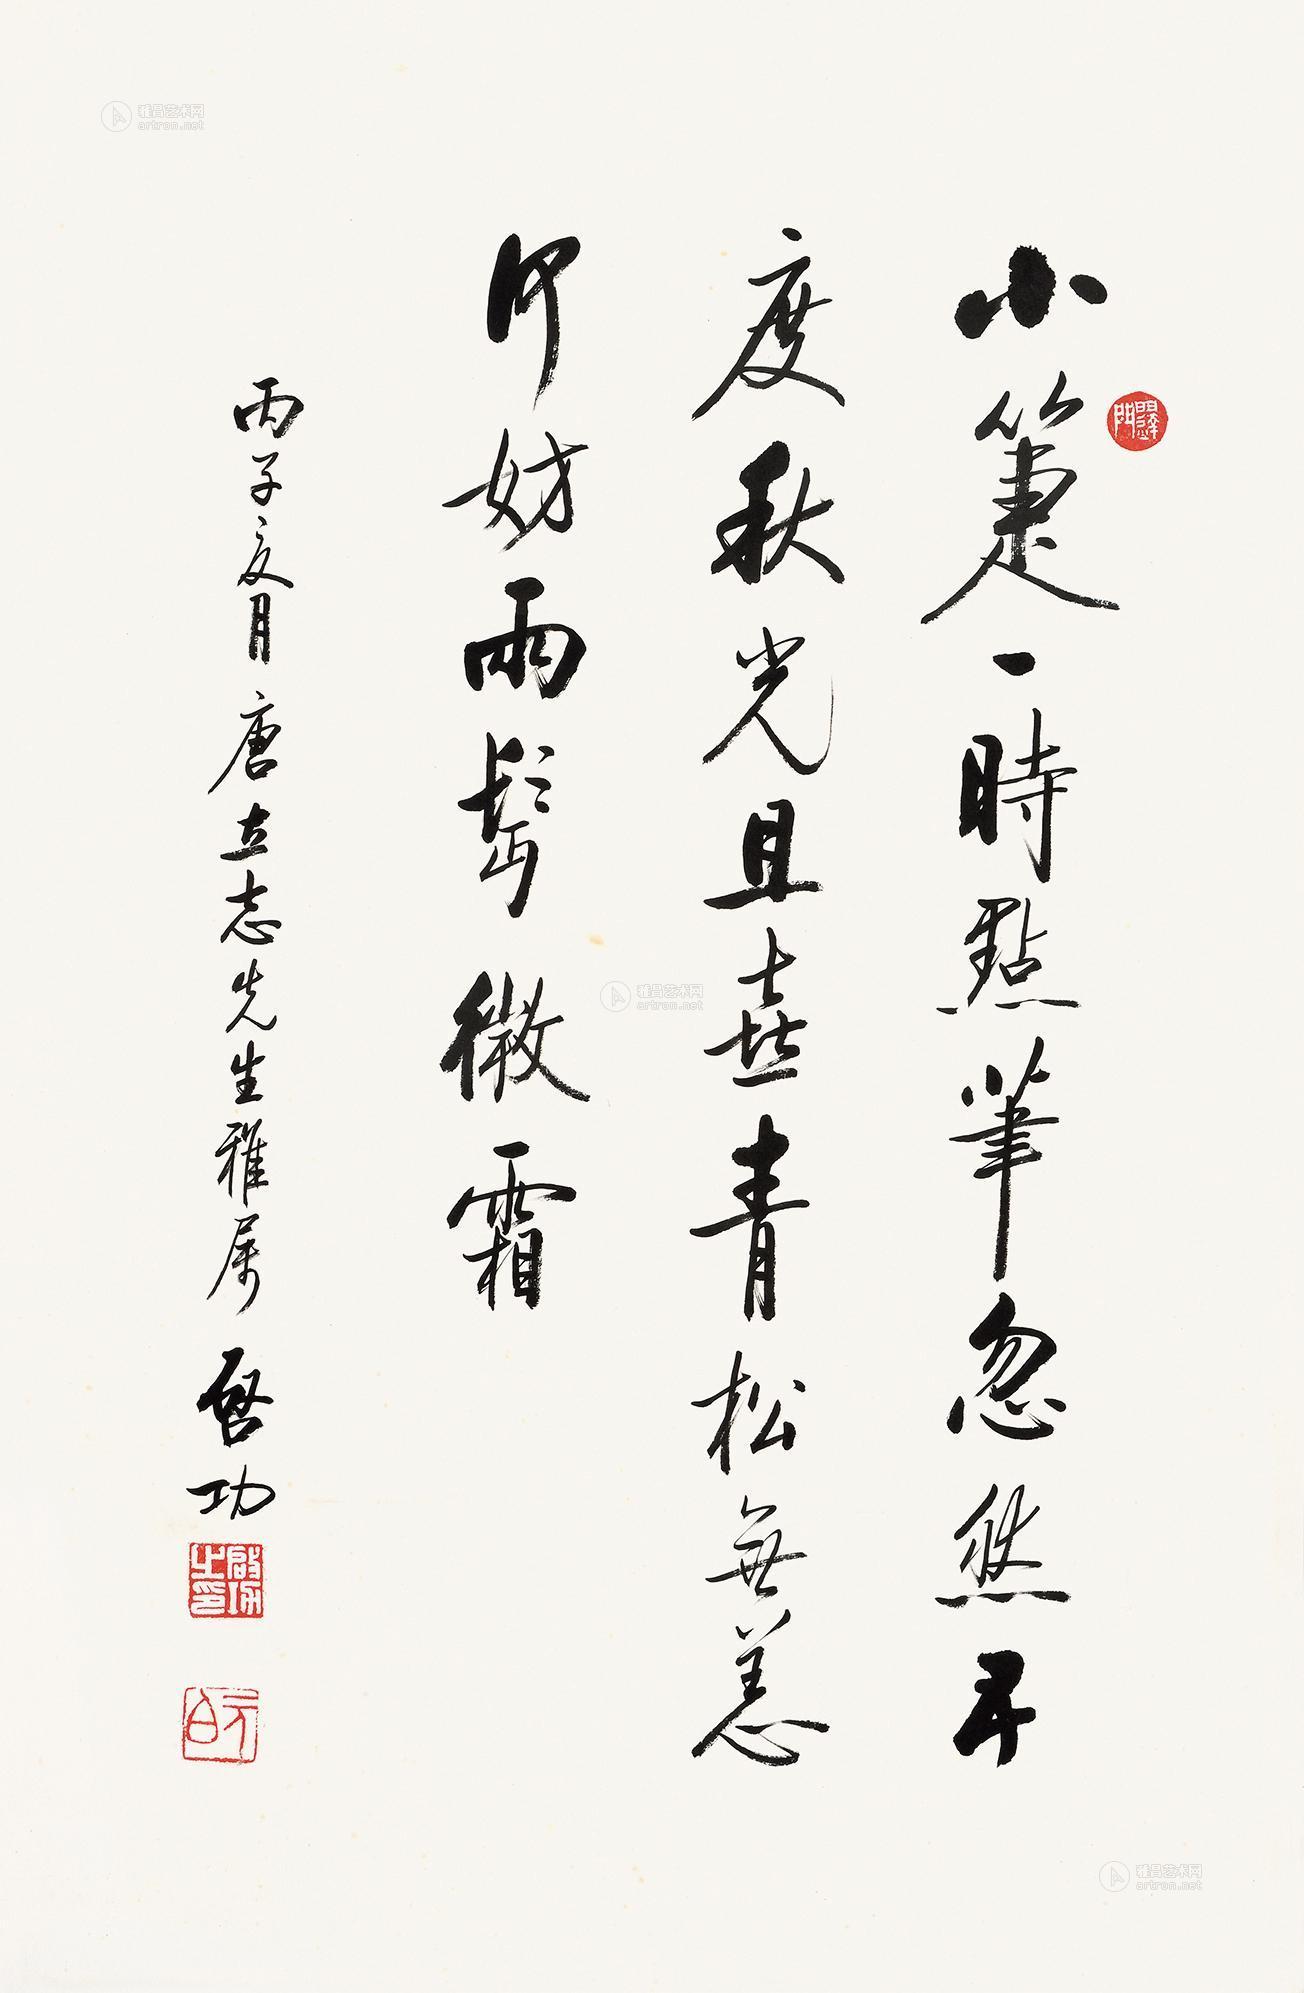 小箑一時點筆忽然再
度秋光且喜青松無恙
何妨兩鬢微霜
丙子夏月唐立志先生雅属 啓功
啟功之印
元白
雅昌艺术网
artron.net
雅昌艺术网
artron.net
雅昌艺术网
artron.net